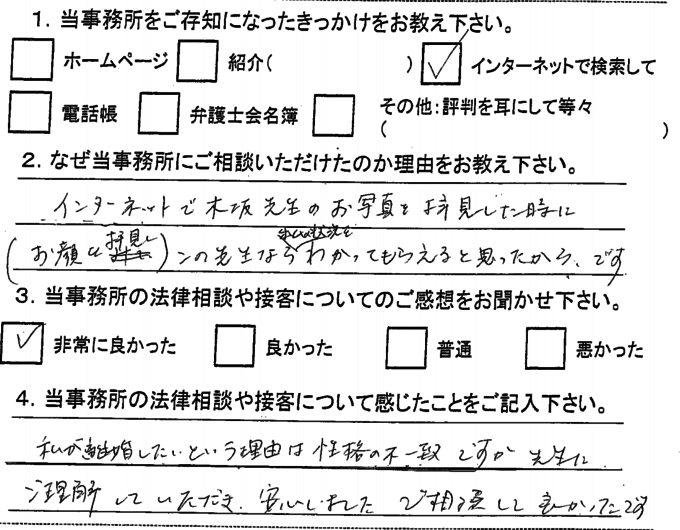 1. 当事務所をご存知になったきっかけをお教え下さい。
ホームページ 紹介( ) インターネットで検索して
電話帳 弁護士会名簿 その他:評判を耳にして等々
( )
2. なぜ当事務所にご相談いただけたのか理由をお教え下さい。
インターネットで木坂先生のお写真を拝見した時に
私の状況を
(お顔を拝見し)この先生ならわかってもらえると思ったから、です
3. 当事務所の法律相談や接客についてのご感想をお聞かせ下さい。
非常に良かった 良かった 普通 悪かった
4. 当事務所の法律相談や接客について感じたことをご記入下さい。
私が離婚したいという理由は性格の不一致ですが先生に
ご理解していただき、安心しました ご相談して良かったです